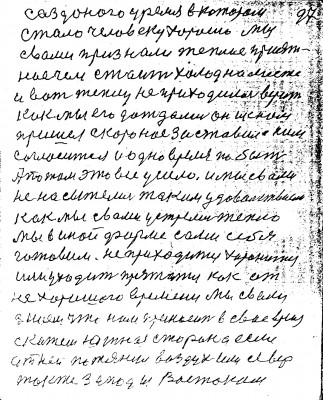 создоного уремя в котором 97
стало человеку хорошо. Мы
свами признали теплые прият-
на стаит холодна
и вот теплу не приходила вдруг
как мы его дождали он
пришел скорное заставил с ним
согласится и одно время побыт
А потом это все ушло. и мы свами
не насытели таким удовольствием
как мы свами устрели тепло
мы в иной форме сами себя
готовим. не приходит к хорошему
или уходит прятати как от
не хорошого времени мы свами
знаем что нам приносит в свае врия
скажем южная сторона если
от ней потянул воздух или север
также Запад и Востоком